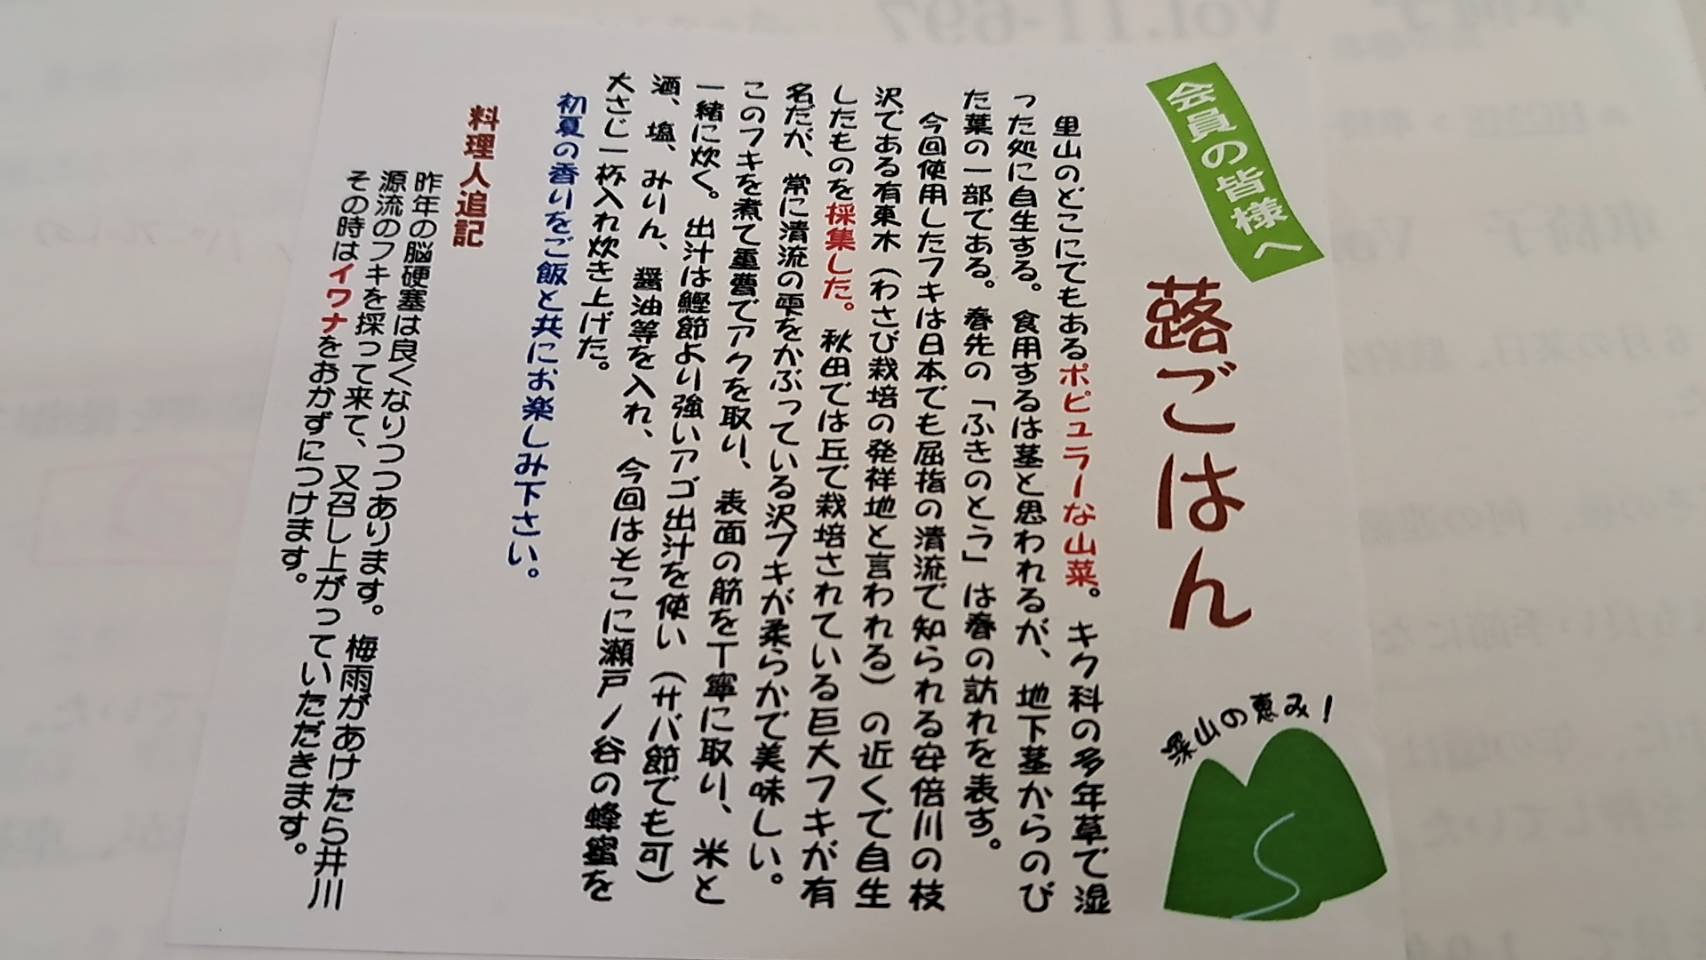 会員の皆様へ
蕗ごはん
深山の恵み!
里山のどこにでもあるポピュラーな山菜。キク科の多年草で湿
った処に自生する。食用するは茎と思われるが、地下茎からのび
た葉の一部である。春先の「ふきのとう」は春の訪れを表す。
今回使用したフキは日本でも屈指の清流で知られる安倍川の枝
沢である有東木(わさび栽培の発祥地と言われる)の近くで自生
したものを採集した。秋田では丘で栽培されている巨大フキが有
名だが、常に清流の雫をかぶっている沢フキが柔らかで美味しい。
このフキを煮て重曹でアクを取り、表面の筋を丁寧に取り、米と
一緒に炊く。出汁は鰹節より強いアゴ出汁を使い(サバ節でも可)
酒、塩、みりん、醤油等を入れ、今回はそこに瀬戸ノ谷の蜂蜜を
大さじ一杯入れ炊き上げた。
初夏の香りをご飯と共にお楽しみ下さい。
料理人追記
昨年の脳硬塞は良くなりつつあります。梅雨があけたら井川
源流のフキを採って来て、又召し上がっていただきます。
その時はイワナをおかずにつけます。